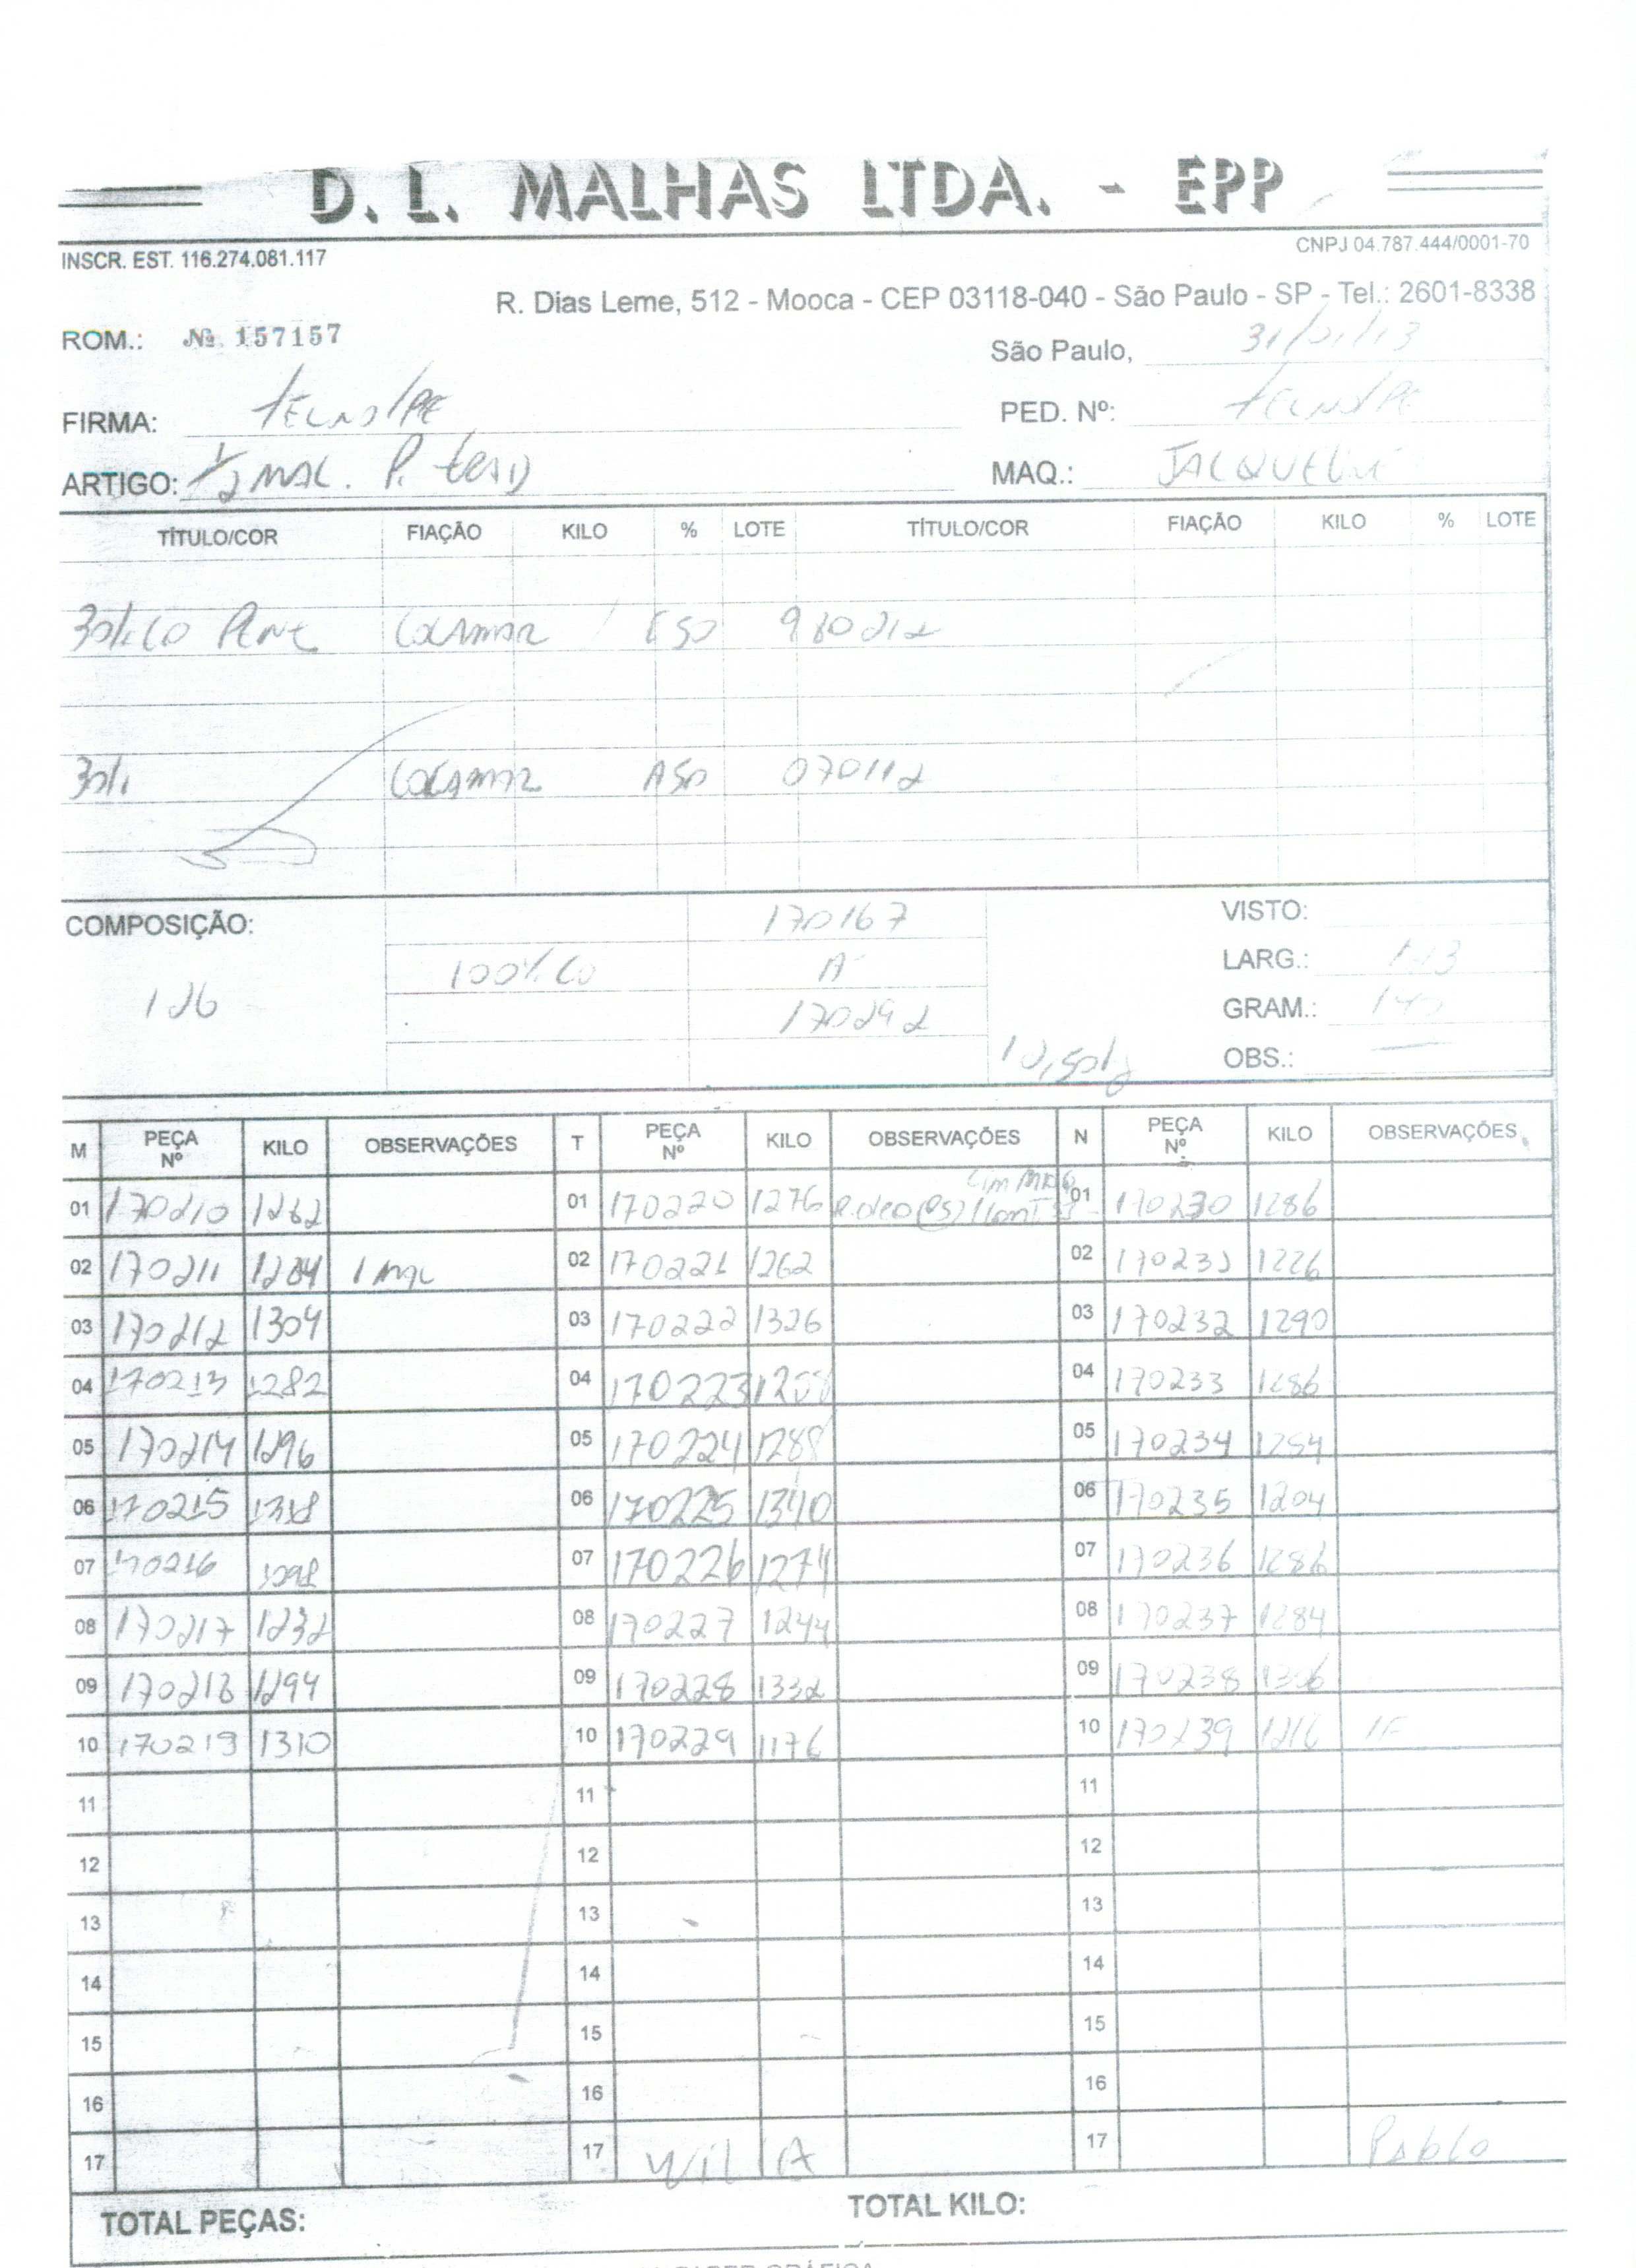 D. L. MALHAS LTDA. - EPP
INSCR. EST. 116.274.081.117
CNPJ 04.787.444/0001-70
R. Dias Leme, 512 - Mooca - CEP 03118-040 - São Paulo - SP - Tel.: 2601-8338
ROM.: Nº 157157
São Paulo, 31/01/13
FIRMA:
PED. Nº:
ARTIGO: 1/2 MAL. P.
MAQ.: JACQUELINE
TÍTULO/COR FIAÇÃO KILO % LOTE TÍTULO/COR FIAÇÃO KILO % LOTE
30/1 CO COCAMAR 980212
30/1 COCAMAR 070112
COMPOSIÇÃO: 170167 VISTO:
100% CO A LARG.:
126 170292 GRAM.: 140
OBS.:
M PEÇA Nº KILO OBSERVAÇÕES T PEÇA Nº KILO OBSERVAÇÕES N PEÇA Nº KILO OBSERVAÇÕES
01 170210 1262 01 170220 1276 01 170230 1286
02 170211 02 170221 1262 02 170231 1226
03 170212 1304 03 170222 1326 03 170232 1290
04 170213 1282 04 170223 04 170233 1286
05 170214 1296 05 170224 1288 05 170234
06 170215 06 170225 1340 06 170235 1204
07 170216 1298 07 170226 1274 07 170236 1286
08 170217 1232 08 170227 1244 08 170237 1284
09 170218 1294 09 170228 1332 09 170238 1306
10 170219 1310 10 170229 1176 10 170239 1216
11 11 11
12 12 12
13 13 13
14 14 14
15 15 15
16 16 16
17 17 Wil A 17 Pablo
TOTAL PEÇAS: TOTAL KILO: